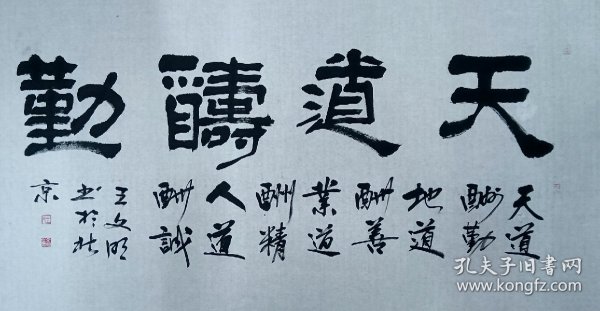 天道醻勤
天道
酬勤
地道
酬善
業道
酬精
人道
酬誠
王文明
书於北
京
孔夫子旧书网
www.kongfz.com